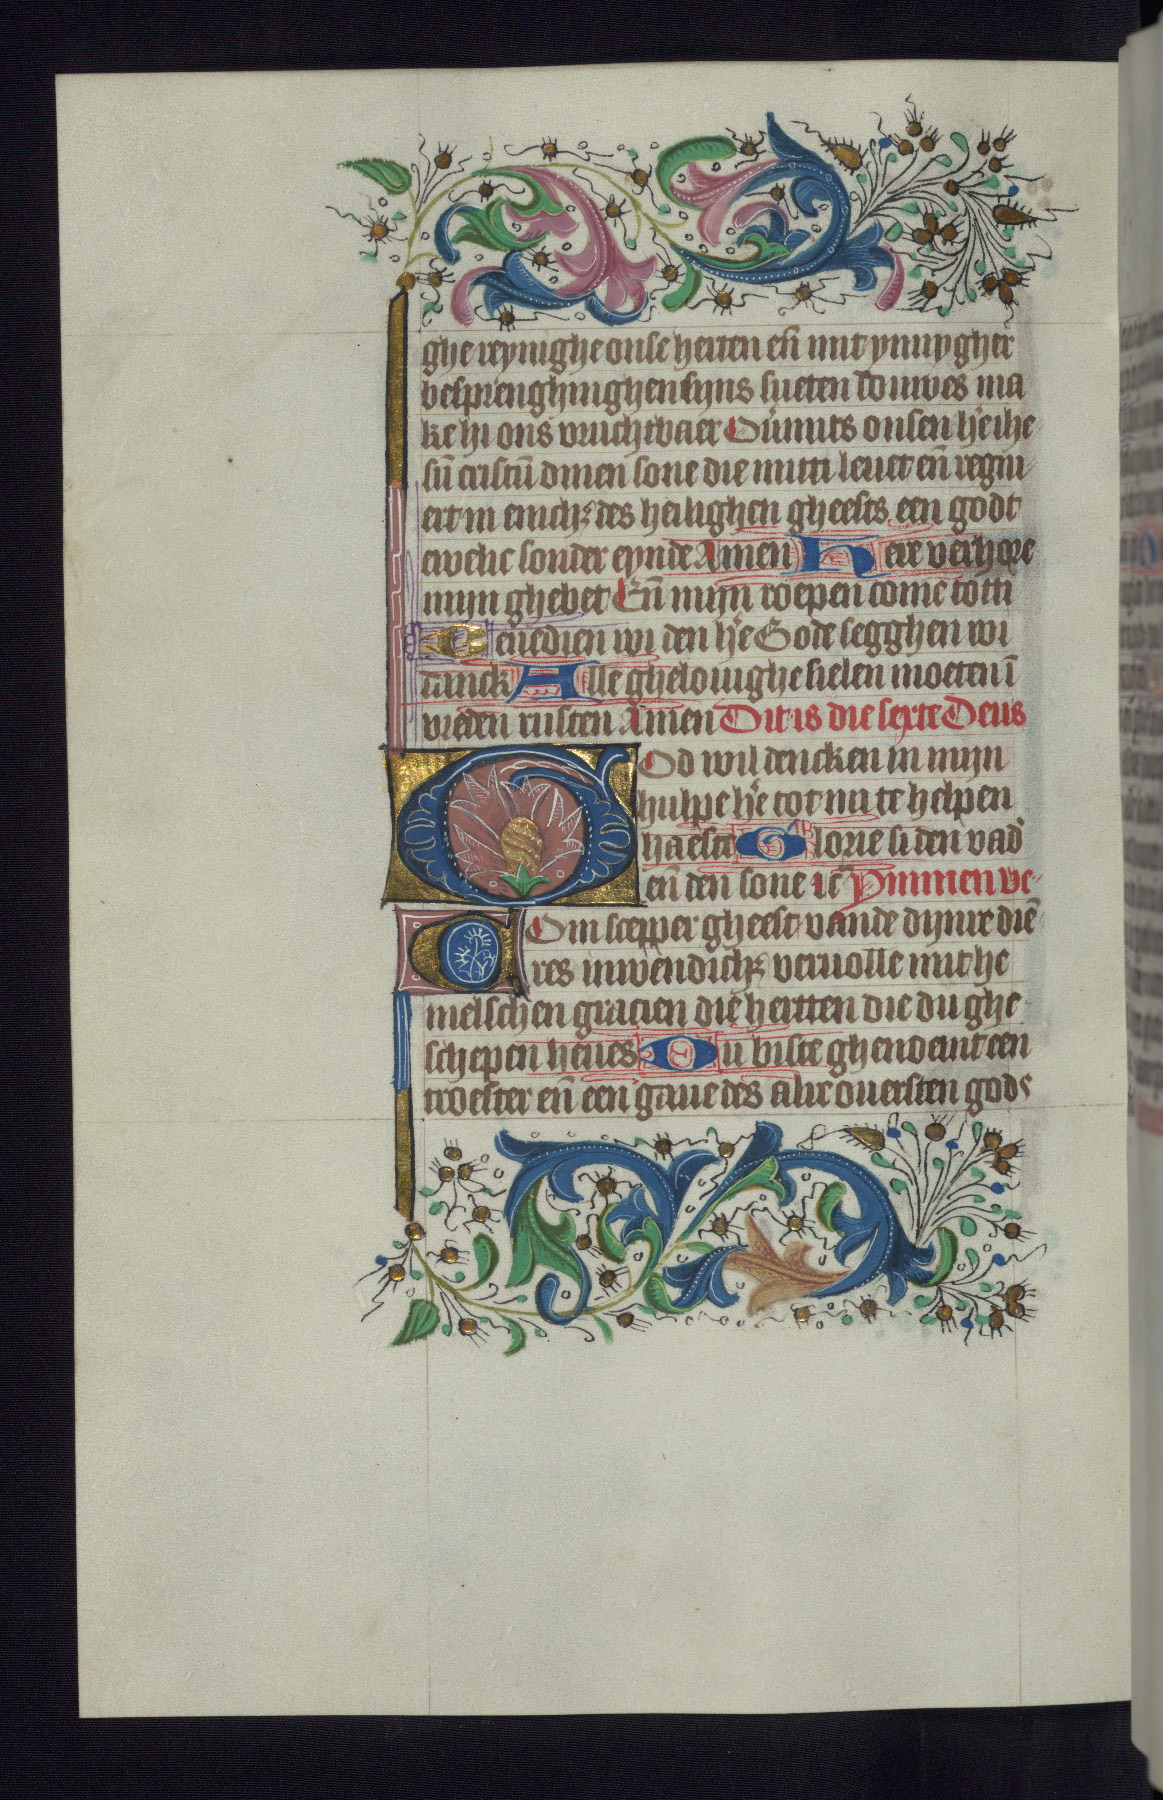 ghe reynighe onse herten eñ mit ynnygher
besprenghinghen sijns sueten douwes ma
ke hi ons vruchtbaer Ouͥmits onsen he ihe
sũ cristũ dinen sone die mitti leuet eñ regni
ert in enich des heilighen gheests een godt
ewelic sonder eynde Amen Here verhore
mijn ghebet Eñ mijn roepen come totti
Benedien wi den he Gode segghen wi
danck Alle ghelouighe sielen moeten ĩ
vreden rusten Amen Dit is die sexte Deus
God wil dencken in mijn
hulpe he tot mi te helpen
haeste Glorie si den vad
eñ den sone ec Ymmen ve
Com scepper gheest vande dijnre diẽ
res inwendich veruolle mit he
melschen gracien die hertten die du ghe
schepen heues Du biste ghenoemt een
troester eñ een gaue des alre ouersten gods